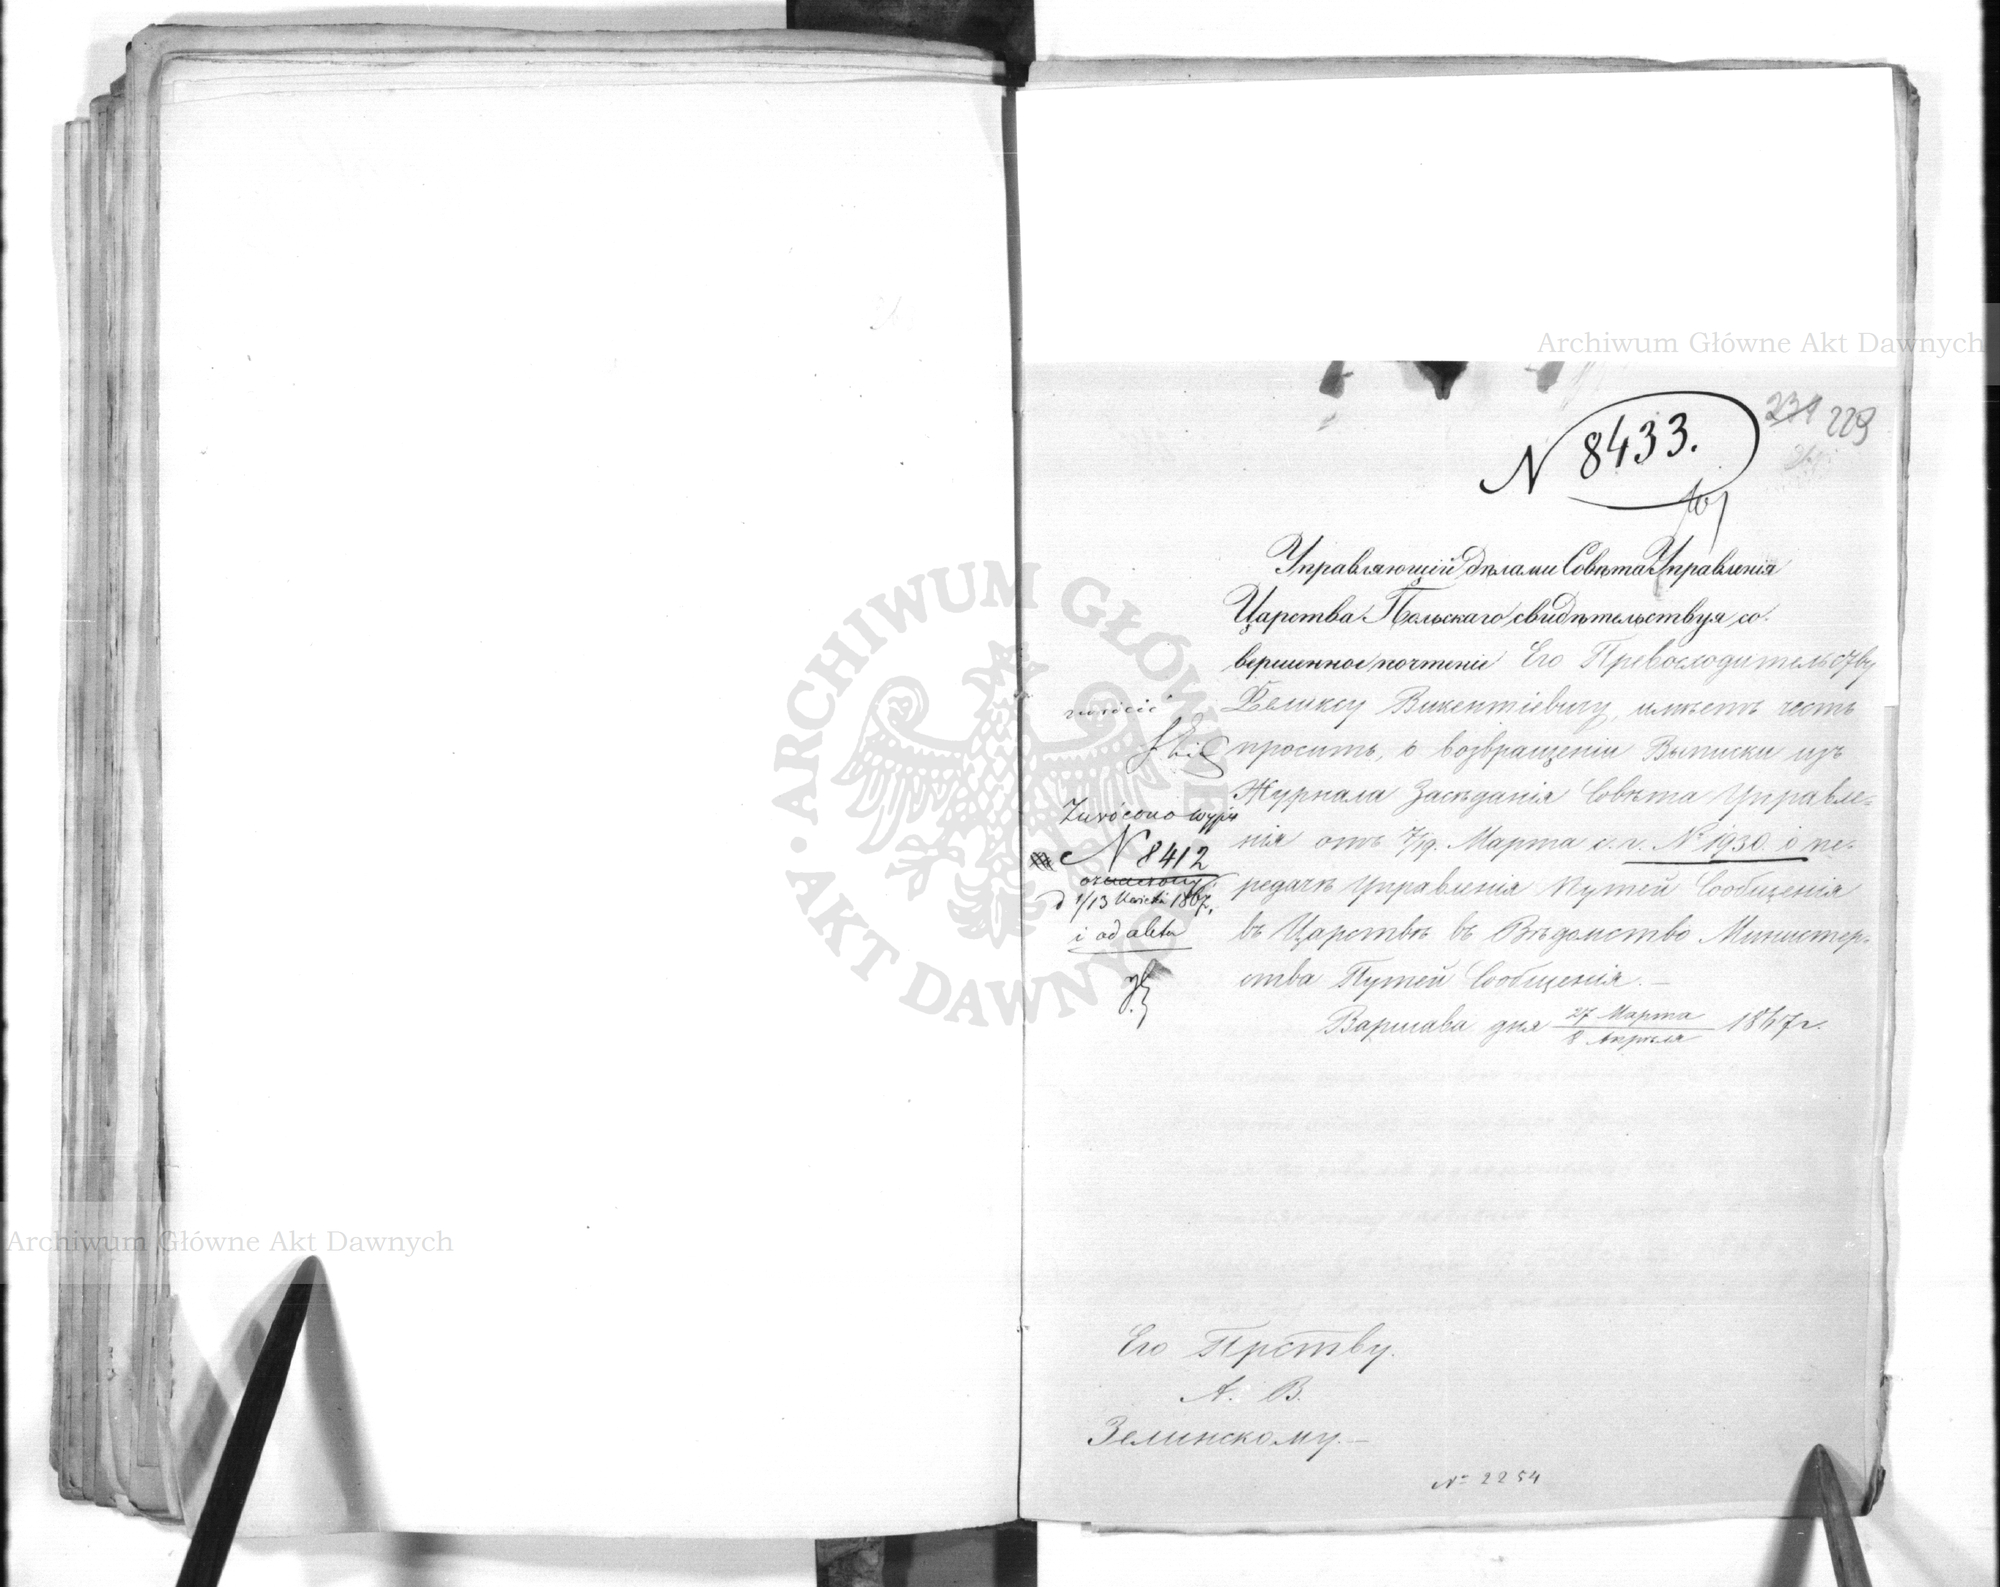 N 8433.
231 229
Управляющій дѣлами Совѣта Управленія
Царства Польскаго свидѣтельствуя со-
вершенное почтеніе Его Превосходительству
Феликсу Викентіевичу, имѣетъ честь
просить, о возвращеніи Выписки изъ
Журнала Засѣданія Совѣта Управле-
нія отъ 7/19. Марта с. г. N 1930 о пе-
редачѣ Управленія Путей Сообщенія
въ Царствѣ въ Вѣдомство Министер-
ства Путей Сообщенія.
Варшава дня 27 Марта / 8 Апрѣля 1867 г.
zwrócić
Zwrócono wypis
N 8412
d 1/13 Kwietnia 1867.
i ad akta
Его Прству.
А. В.
Зелинскому.
№ 2254
Archiwum Główne Akt Dawnych
Archiwum Główne Akt Dawnych
ARCHIWUM GŁÓWNE AKT DAWNYCH